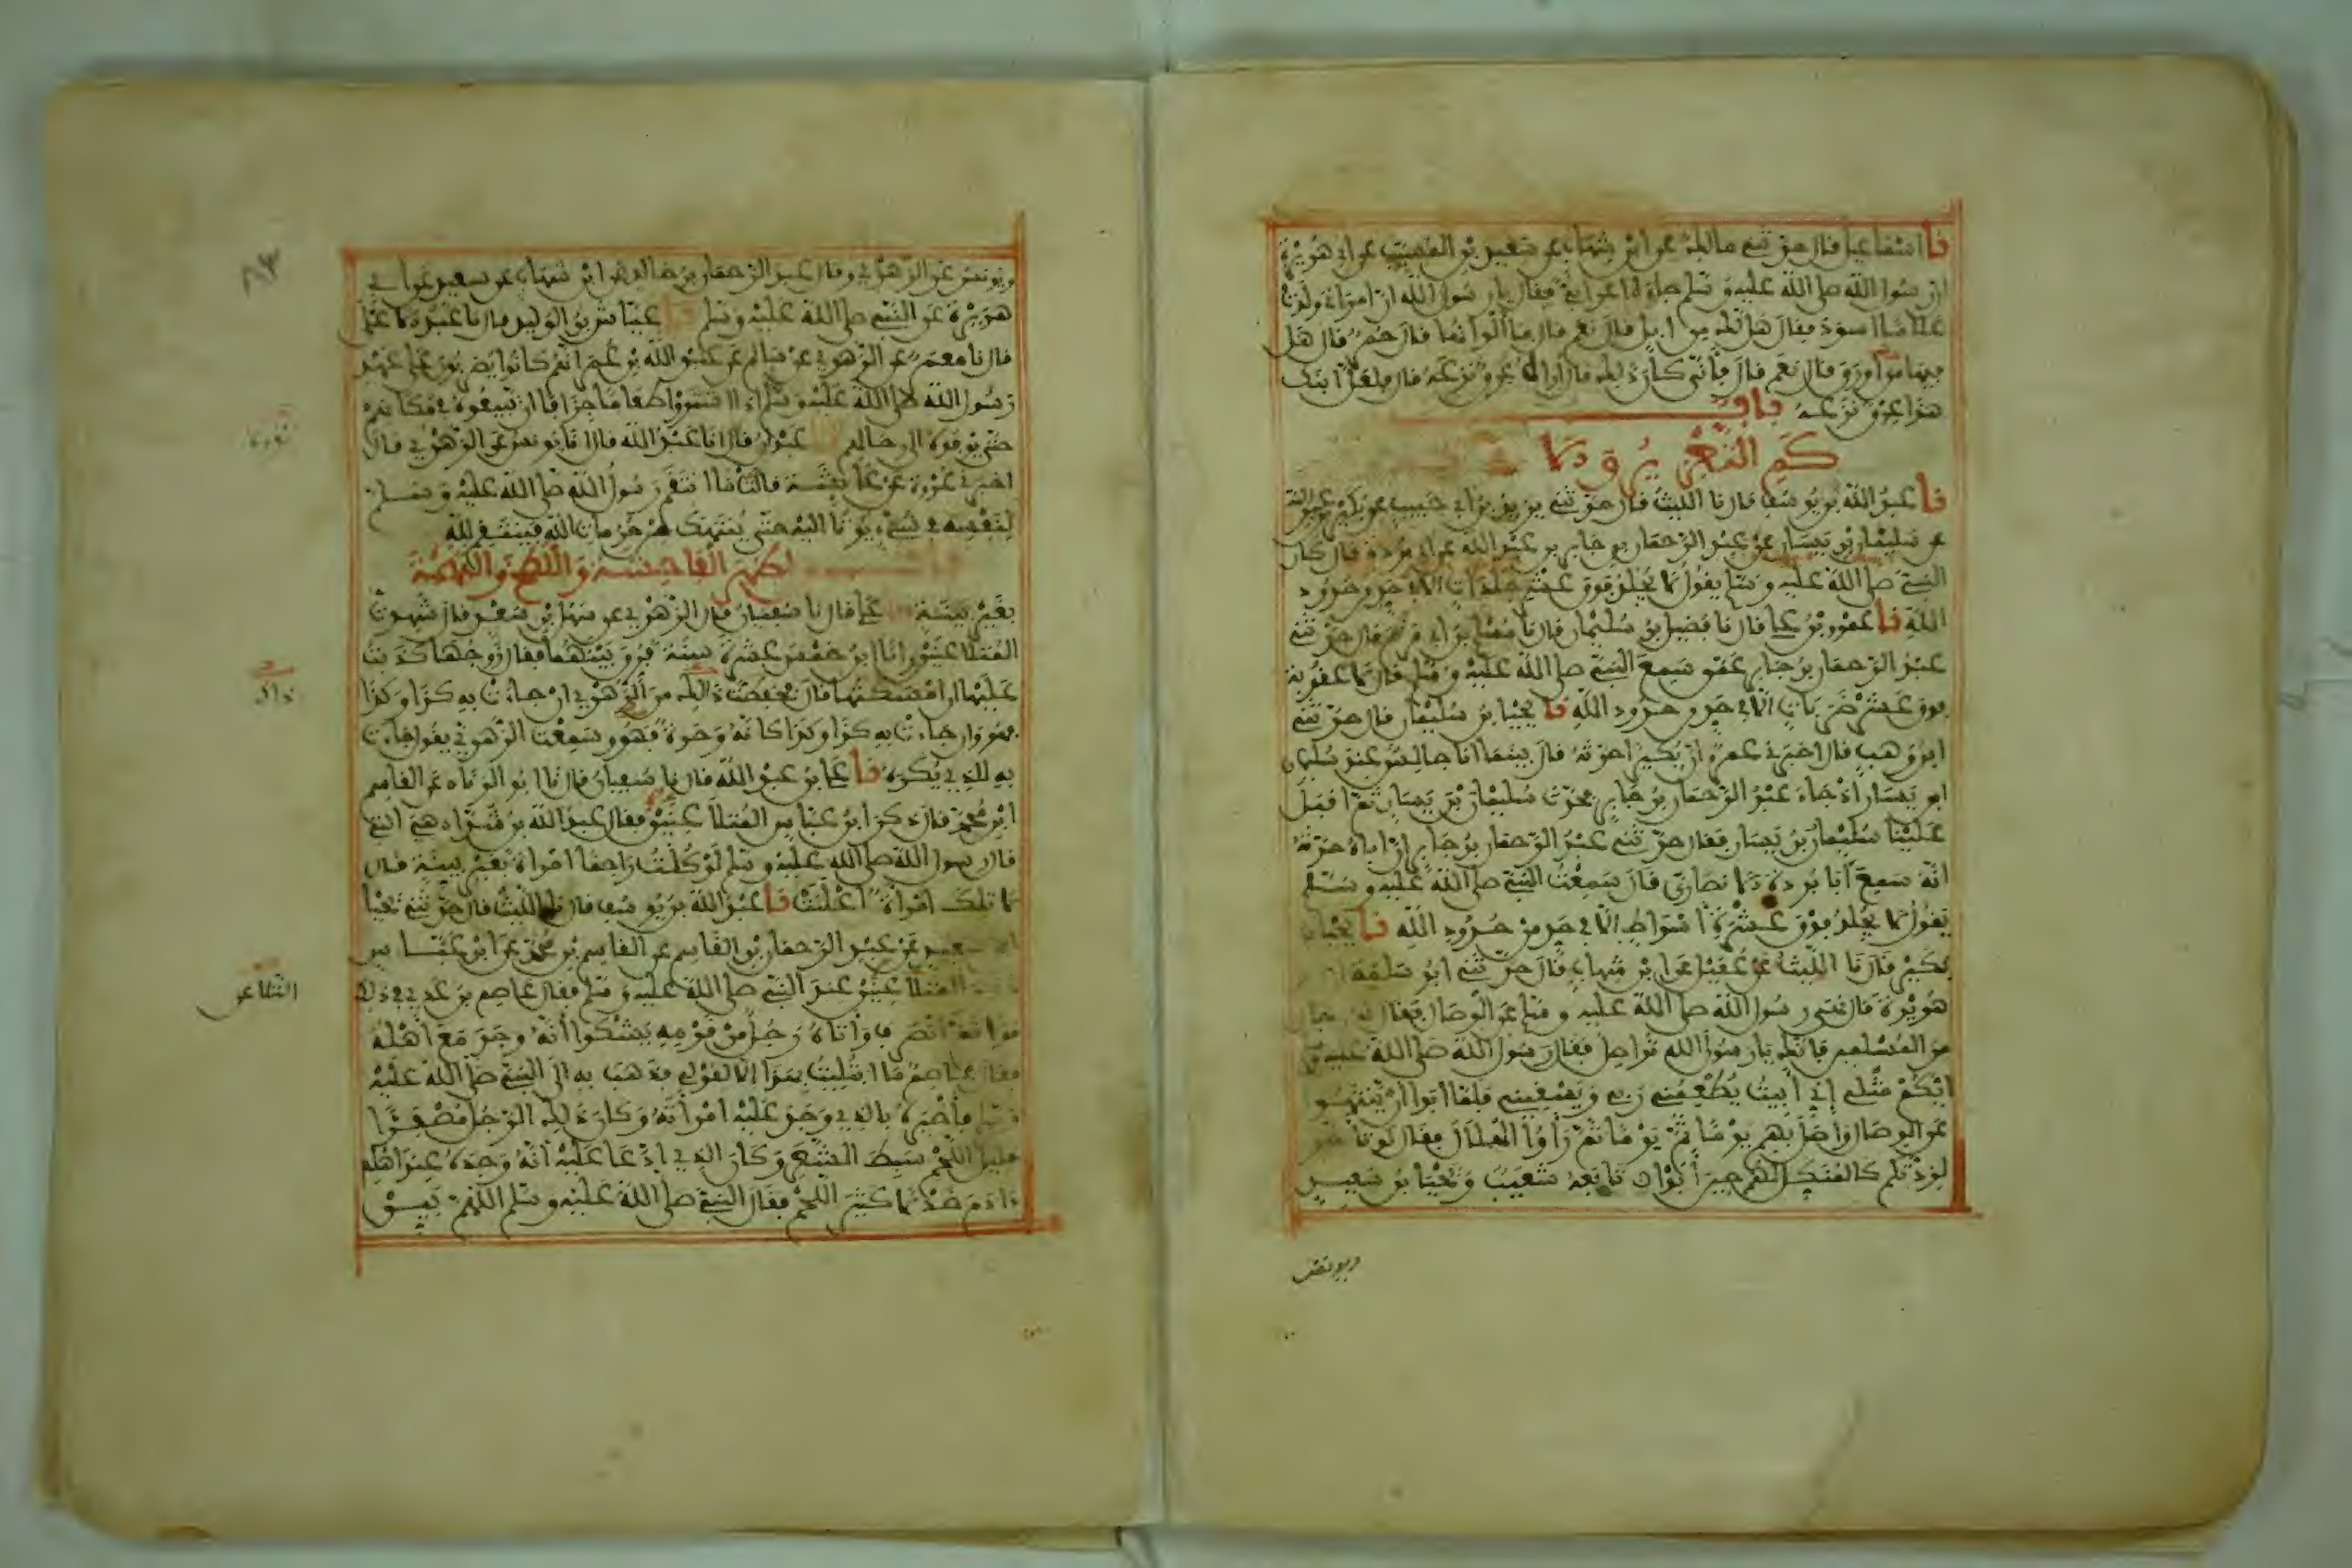 نا اسماعيل قال حدثني مالك عن ابن شهاب عن سعيد بن المسيب عن أبي هريرة
ان رسول الله صلى الله عليه وسلم جاءه اعرابي فقال يا رسول الله ان امراتي ولدت
غلاما اسود فقال هل لك من ابل قال نعم قال ما ألوانها قال حمر قال هل
فيها من أورق قال نعم قال فأنى كان ذلك قال أراه عرق نزعه قال فلعل ابنك
هذا عرق نزعه باب
كم التعزير والأدب
نا عبد الله بن يوسف قال نا الليث قال حدثني يزيد بن أبي حبيب عن بكير بن عبد الله
عن سليمان بن يسار عن عبد الرحمان بن جابر بن عبد الله عن أبي بردة قال كان
النبي صلى الله عليه وسلم يقول لا يجلد فوق عشر جلدات إلا في حد من حدود
الله نا عمرو بن علي قال نا فضيل بن سليمان قال نا مسلم بن أبي مريم قال حدثني
عبد الرحمان بن جابر عمن سمع النبي صلى الله عليه وسلم قال لا عقوبة
فوق عشر ضربات إلا في حد من حدود الله نا يحيا بن سليمان قال حدثني
ابن وهب قال اخبرني عمرو ان بكيرا حدثه قال بينما انا جالس عند سليمان
ابن يسار اذ جاء عبد الرحمان بن جابر فحدث سليمان بن يسار ثم اقبل
علينا سليمان بن يسار فقال حدثني عبد الرحمان بن جابر ان اباه حدثه
انه سمع أبا بردة الأنصاري قال سمعت النبي صلى الله عليه وسلم
يقول لا يجلد فوق عشرة اسواط إلا في حد من حدود الله نا يحيا بن
بكير قال نا الليث عن عقيل عن ابن شهاب قال حدثني ابو سلمة ان
هريرة قال نهى رسول الله صلى الله عليه وسلم عن الوصال فقال له رجال
من المسلمين فإنك يا رسول الله تواصل فقال رسول الله صلى الله عليه
ايكم مثلي إني أبيت يطعمني ربي ويسقيني فلما ابوا ان ينتهوا
عن الوصال واصل بهم يوما ثم يوما ثم رأوا الهلال فقال لو تأخر
لزدتكم كالمنكل لهم حين أبوا تابعه شعيب ويحيا بن سعيد
ويونس
ويونس عن الزهري وقال عبد الرحمان بن خالد عن ابن شهاب عن سعيد عن أبي
هريرة عن النبي صلى الله عليه وسلم نا عياش بن الوليد قال نا عبد الأعلى
قال نا معمر عن الزهري عن سالم عن عبد الله بن عمر انهم كانوا يضربون على عهد
رسول الله صلى الله عليه وسلم اذا اشتروا طعاما جزافا ان يبيعوه في مكانهم
حتى يؤووه الى رحالهم نا عبدان قال انا عبد الله قال انا يونس عن الزهري قال
اخبرني عروة عن عائشة قالت ما انتقم رسول الله صلى الله عليه وسلم
لنفسه في شيء يؤتا اليه حتى ينتهك من حرمات الله فينتقم لله
باب من اظهر الفاحشة واللطخ والتهمة
بغير بينة نا علي قال نا سفيان قال الزهري عن سهل بن سعد قال شهدت
المتلاعنين وانا ابن خمس عشرة سنة فرق بينهما فقال زوجها كذبت
عليها ان امسكتها قال فحفظت ذلك من الزهري ان جاءت به كذا وكذا
فهو وان جاءت به كذا وكذا كانه وحرة فهو وسمعت الزهري يقول جاءت
به للذي يكره نا علي بن عبد الله قال نا سفيان قال نا ابو الزناد عن القاسم
ابن محمد قال ذكر ابن عباس المتلاعنين فقال عبد الله بن شداد هي التي
قال رسول الله صلى الله عليه وسلم لو كنت راجما امراة بغير بينة قال
لا تلك امرأة اعلنت نا عبد الله بن يوسف قال نا الليث قال حدثني يحيا
بن سعيد عن عبد الرحمان بن القاسم عن القاسم بن محمد عن ابن عباس
المتلاعنين عند النبي صلى الله عليه وسلم فقال عاصم بن عدي في ذلك
قولا ثم انصرف وأتاه رجل من قومه يشكوا أنه وجد مع أهله
فقال عاصم ما ابتليت بهذا إلا لقولي فذهب به الى النبي صلى الله عليه
وسلم فأخبره بالذي وجد عليه امرأته وكان ذلك الرجل مصفرا
قليل اللحم سبط الشعر وكان الذي ادعا عليه أنه وجده عند اهله
ءادم خدلا كثير اللحم فقال النبي صلى الله عليه وسلم اللهم بين